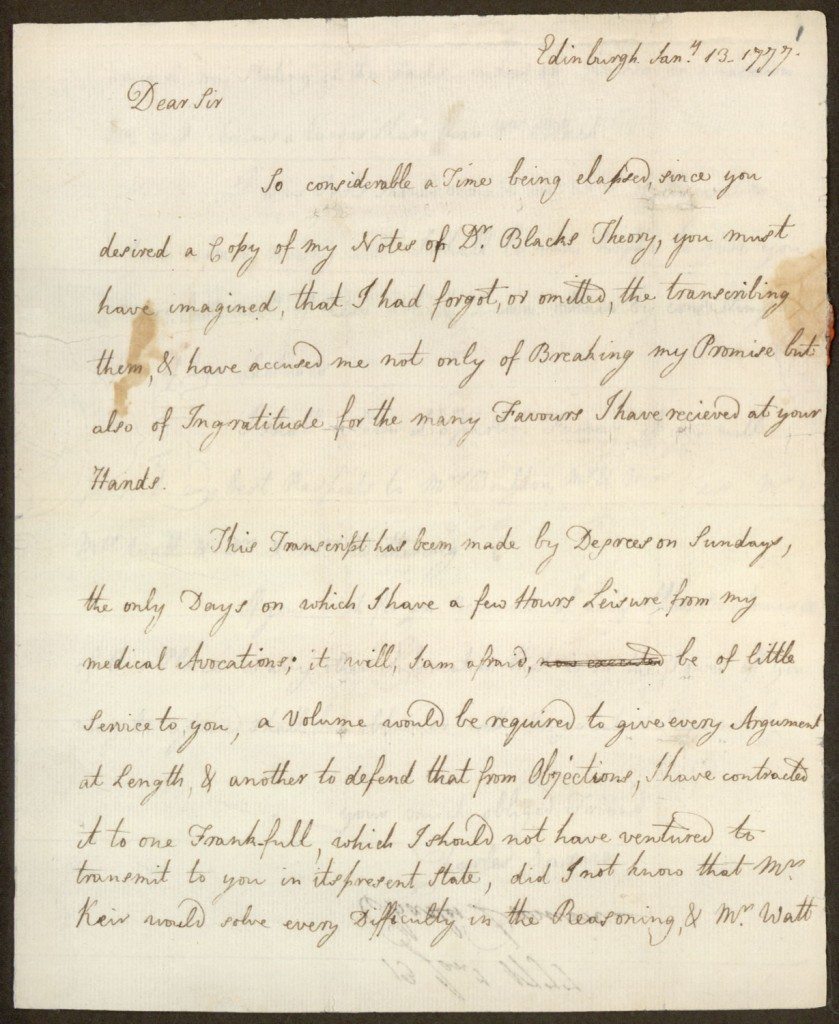 1
Edinburgh Jany. 13. 1777.
Dear Sir
So considerable a Time being elapsed, since you
desired a Copy of my Notes of Dr. Blacks Theory, you must
have imagined, that I had forgot, or omitted, the transcribing
them, & have accused me not only of Breaking my Promise but
also of Ingratitude for the many Favours I have recieved at your
Hands.
This Transcript has been made by Degrees on Sundays,
the only Days on which I have a few Hours Leisure from my
medical Avocations; it will, I am afraid, be of little
Service to you, a Volume would be required to give every Argument
at Length, & another to defend that from Objections, I have contracted
it to one Frank-full, which I should not have ventured to
transmit to you in its present State, did I not know that Mr.
Keir would solve every Difficulty in the Reasoning, & Mr. Watt